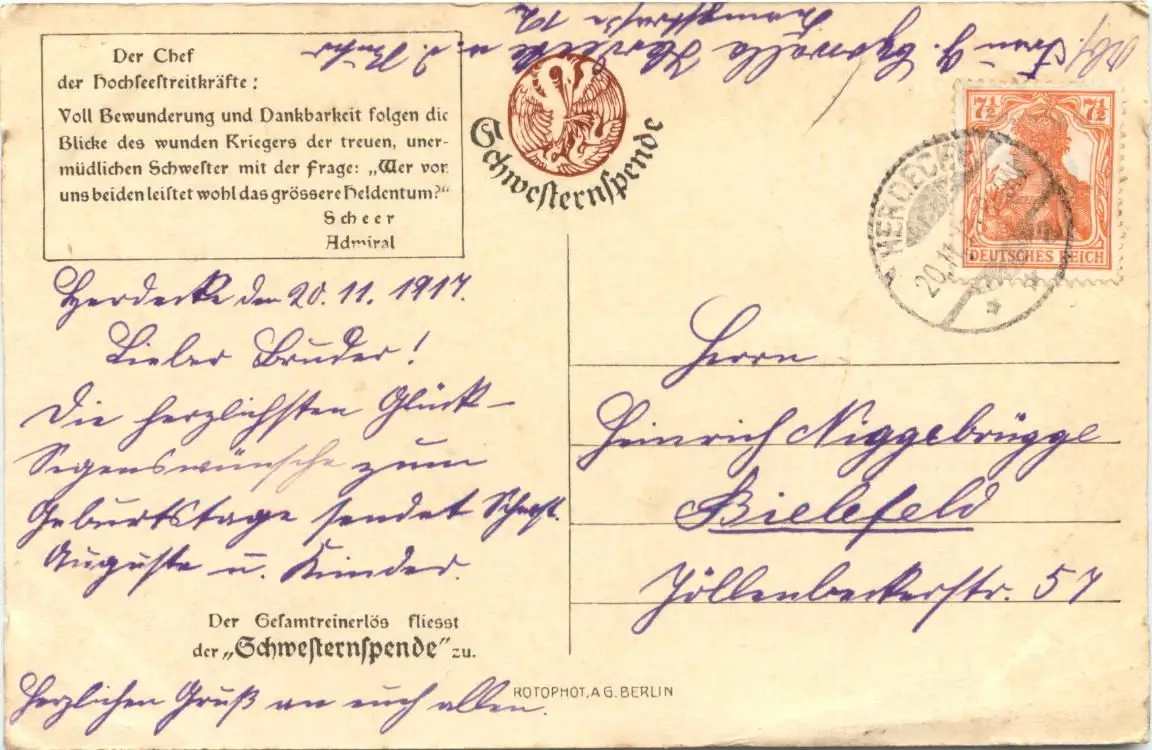 Abs. Frau J. Herdecke a. d. Ruhr
Der Chef
der Hochseestreitkräfte:
Voll Bewunderung und Dankbarkeit folgen die
Blicke des wunden Kriegers der treuen, uner-
müdlichen Schwester mit der Frage: „Wer von
uns beiden leistet wohl das grössere Heldentum?"
Scheer
Admiral
Schwesternspende
7½ 7½
DEUTSCHES REICH
HERDECKE
20.11.
Herdecke den 20.11.1917.
Lieber Bruder!
Die herzlichsten Glück-
Segenswünsche zum
Geburtstage sendet Schwst.
Auguste u. Kinder.
Der Gesamtreinerlös fliesst
der „Schwesternspende" zu.
Herzlichen Gruß an euch allen.
Herrn
Heinrich Niggebrügge
Bielefeld
Jöllenbeckerstr. 57
ROTOPHOT, A.G. BERLIN